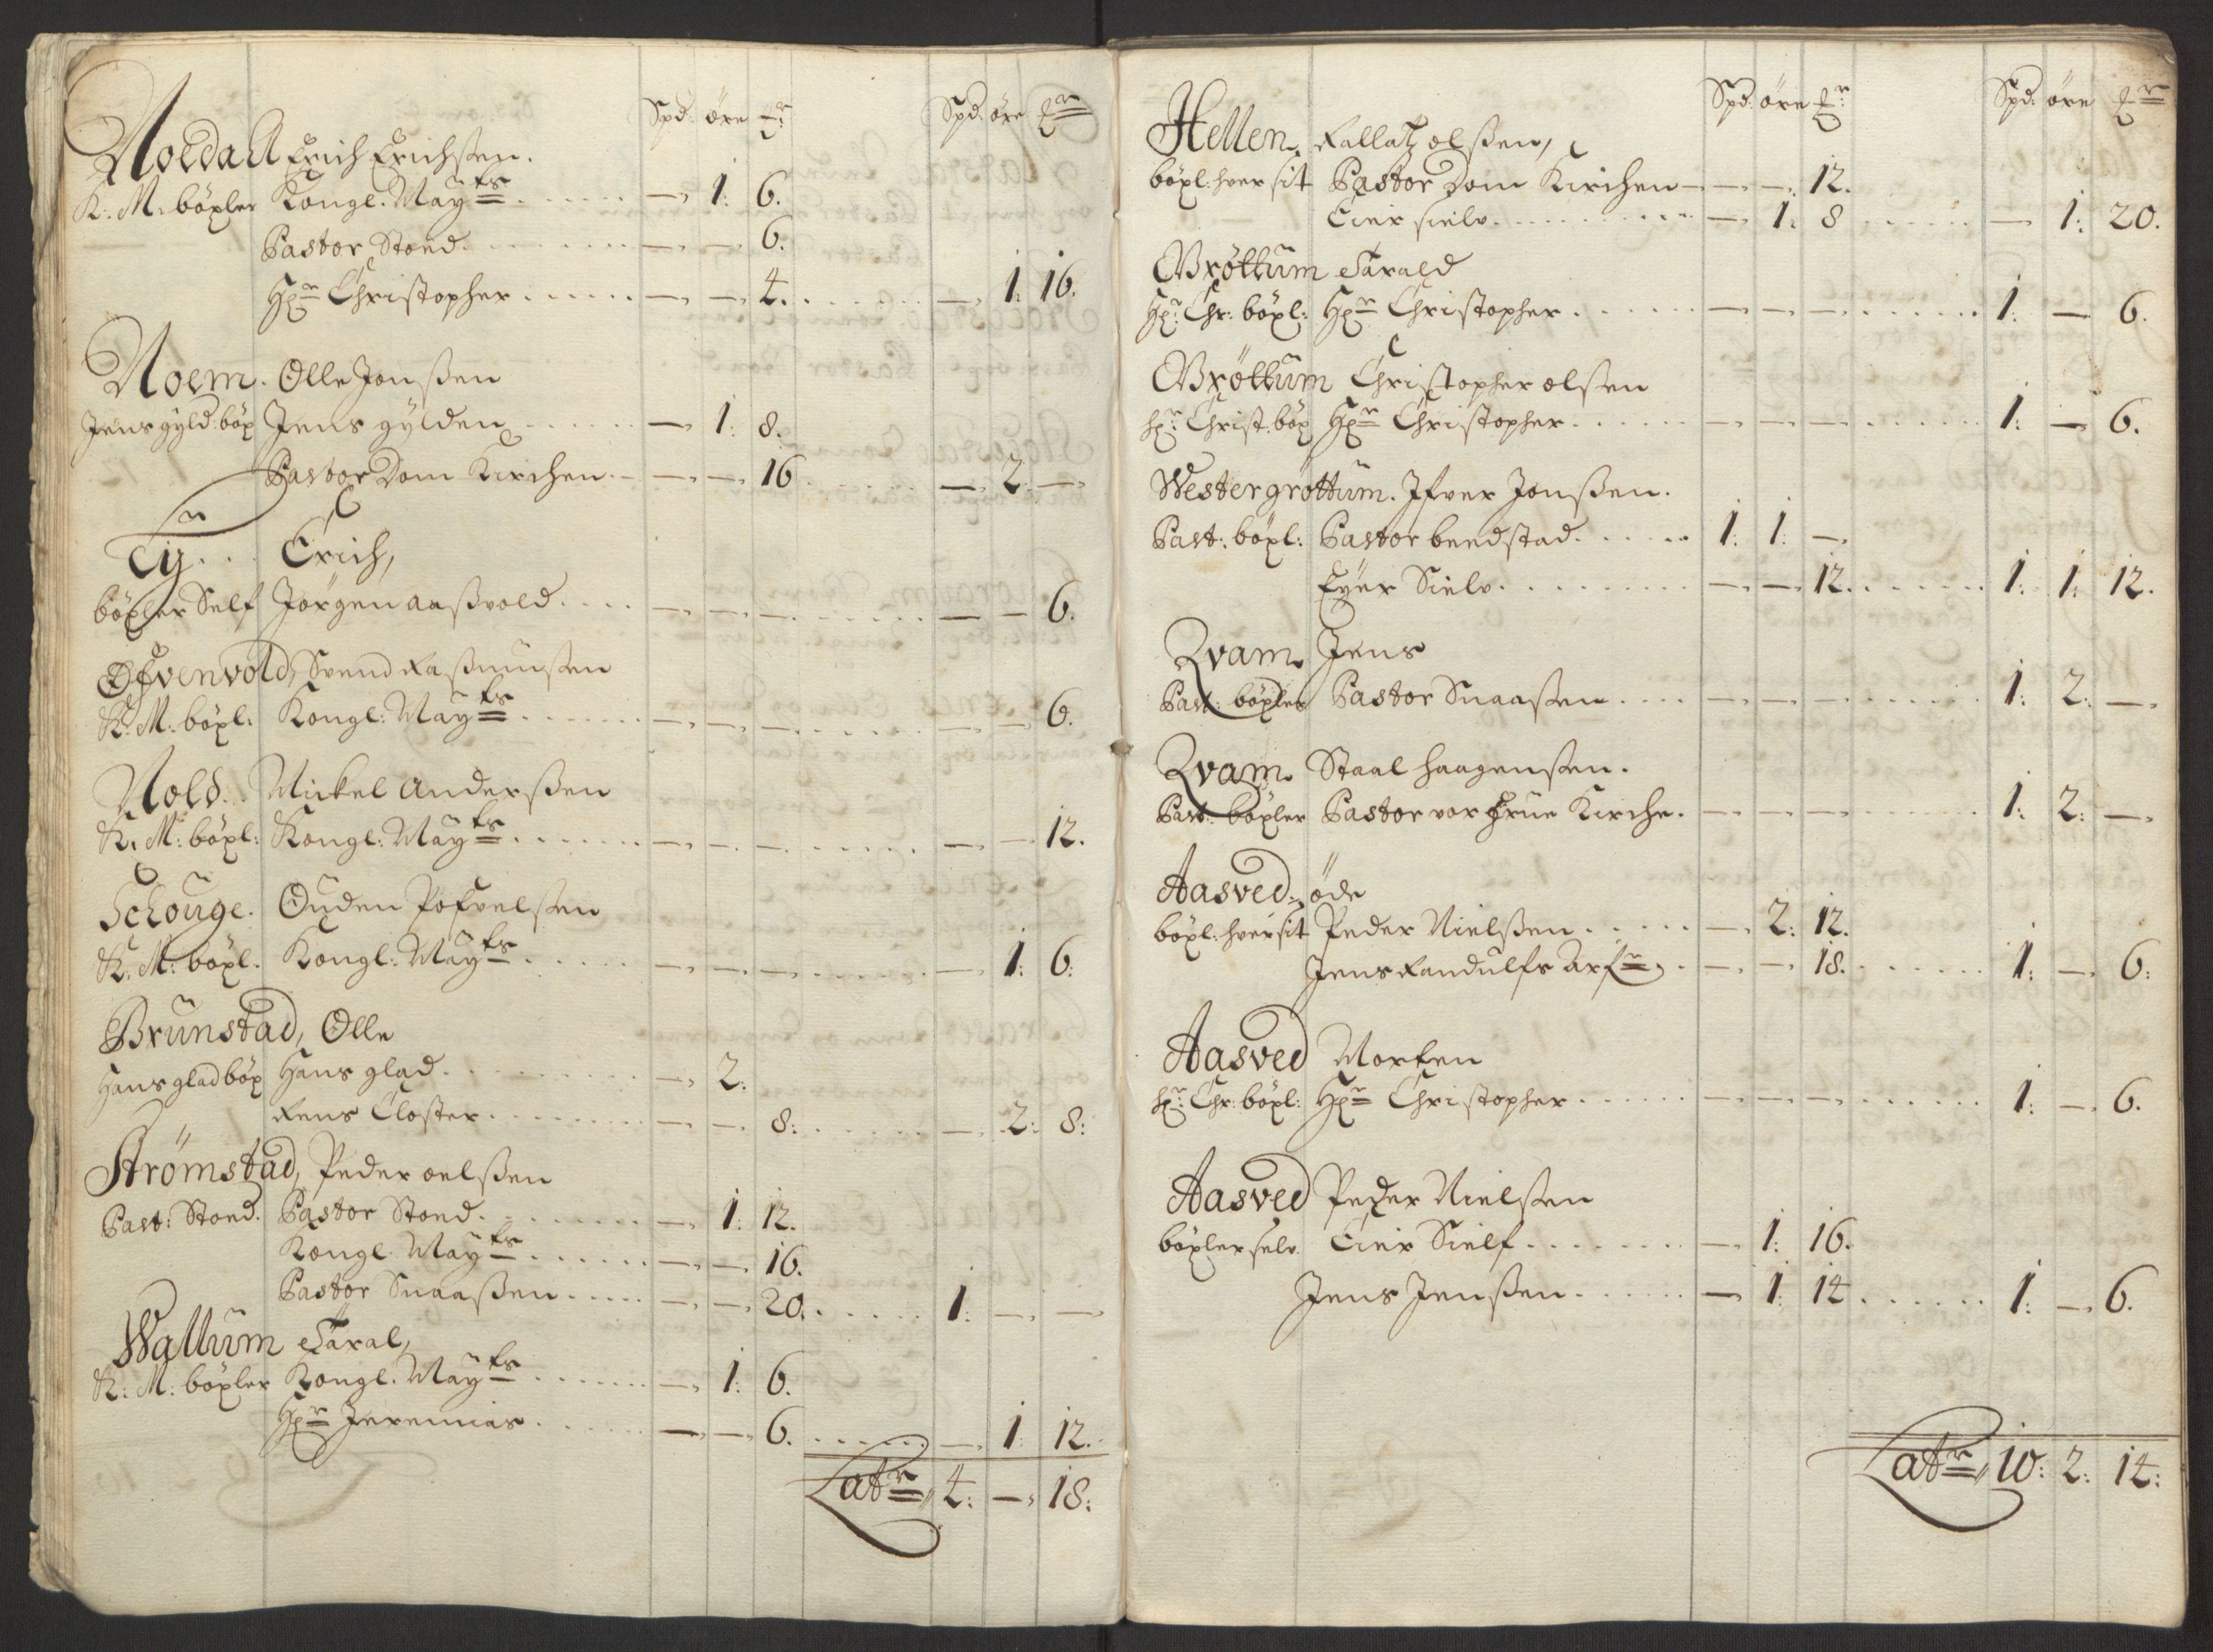 Spd. öre
Spd. öre
Noldall Erich Erichsen.
K: M: böxler Kongl. May ts — 1: 6.
Pastor Stoed. — — 6.
Hr Christopher — — 4. — 1: 16.
Noem. Olle Jonssen
Jens gyld: böx Jens gylden — 1: 8.
Pastor Dom Kirchen — — 16 — 2: —
Erich,
böxler Self Jörgen aassvold — — — — — 6.
Öfvenvold, Svend Rassmussen
K: M: böxl: Kongl: May ts — — — — — 6.
Nold. Mickel Anderssen
K: M: böxl: Kongl: May ts — — — — — 12.
Schouge. Ouden Pofvelssen
K: M: böxl. Kongl: May ts — — — — 1: 6:
Brunstad, Olle
Hans glad böx Hans glad. — 2.
Rens Closter — — 8: — 2: 8:
Strömstad, Peder oelssen
Past: Stoed. Pastor Stoed. — 1: 12.
Kongl. May ts — — 16.
Pastor Snaassen — — 20. 1: — —
Wallum Taral,
K: M: böxler Kongl. May ts — 1: 6.
Hr Jeremias — — 6. — 1 12.
Latr 4: — 18:
Spd: öre
Spd: öre
Hellen. Rallatz olssen,
böxl: hver sit Pastor Dom Kirchen — — 12.
Eier sielv — 1: 8 — 1: 20.
Gröttum Tarald
Hr: Chr: böxl: Hr Christopher — — — 1: — 6.
Gröttum Christopher olsen
hr: Christ: böx Hr Christopher — — — 1: — 6.
Westergröttum. Ifver Jonssen.
Past: böxl: Pastor beedstad 1: 1: —
Eyer Sielv — — 12. 1: 1: 12.
Qvam. Jens
Past: böxler Pastor Snaassen — — — 1: 2: —
Qvam. Staal haagenssen.
Past: böxler Pastor vor Frue Kirche. — — — 1: 2: —
Aasved. öde
böxl: hver sit Peder Nielssen — 2: 12.
Jens Randulfs Arf — — 18. 1: — 6:
Aasved Morten
hr: Chr: böxl: Hr Christopher — — — 1: — 6.
Aasved Peder Nielssen
böxler selv Eier Sielf — 1: 16.
Jens Jenssen — 1: 14 1: — 6.
Latr 10: 2: 14: